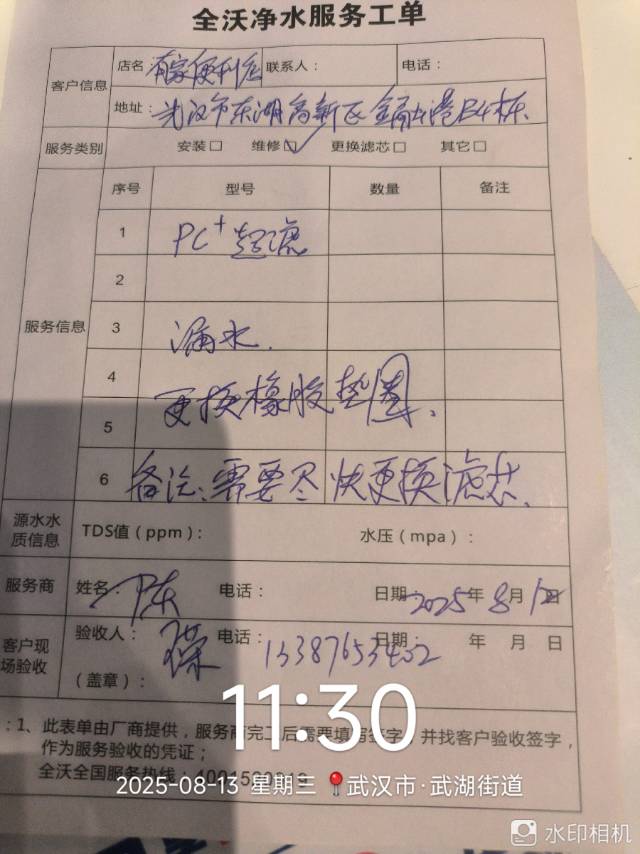 全沃净水服务工单
客户信息 店名 有家便利店 联系人： 电话：
地址：武汉市东湖高新区金融港B4栋
服务类别 安装□ 维修☑ 更换滤芯□ 其它□
服务信息 序号 型号 数量 备注
1 PC+超滤
2
3 漏水.
4 更换橡胶垫圈.
5
6 备注: 需要尽快更换滤芯.
源水水质信息 TDS值（ppm）： 水压（mpa）：
服务商 姓名： 陈 电话： 日期 2025年 8月 日
客户现场验收 验收人： 电话： 13387653402 日期： 年 月 日
（盖章）：
：1、此表单由厂商提供，服务商完工后需要填写签字，并找客户验收签字，
作为服务验收的凭证；
全沃全国服务热线：
11:30
2025-08-13 星期三 武汉市·武湖街道
水印相机